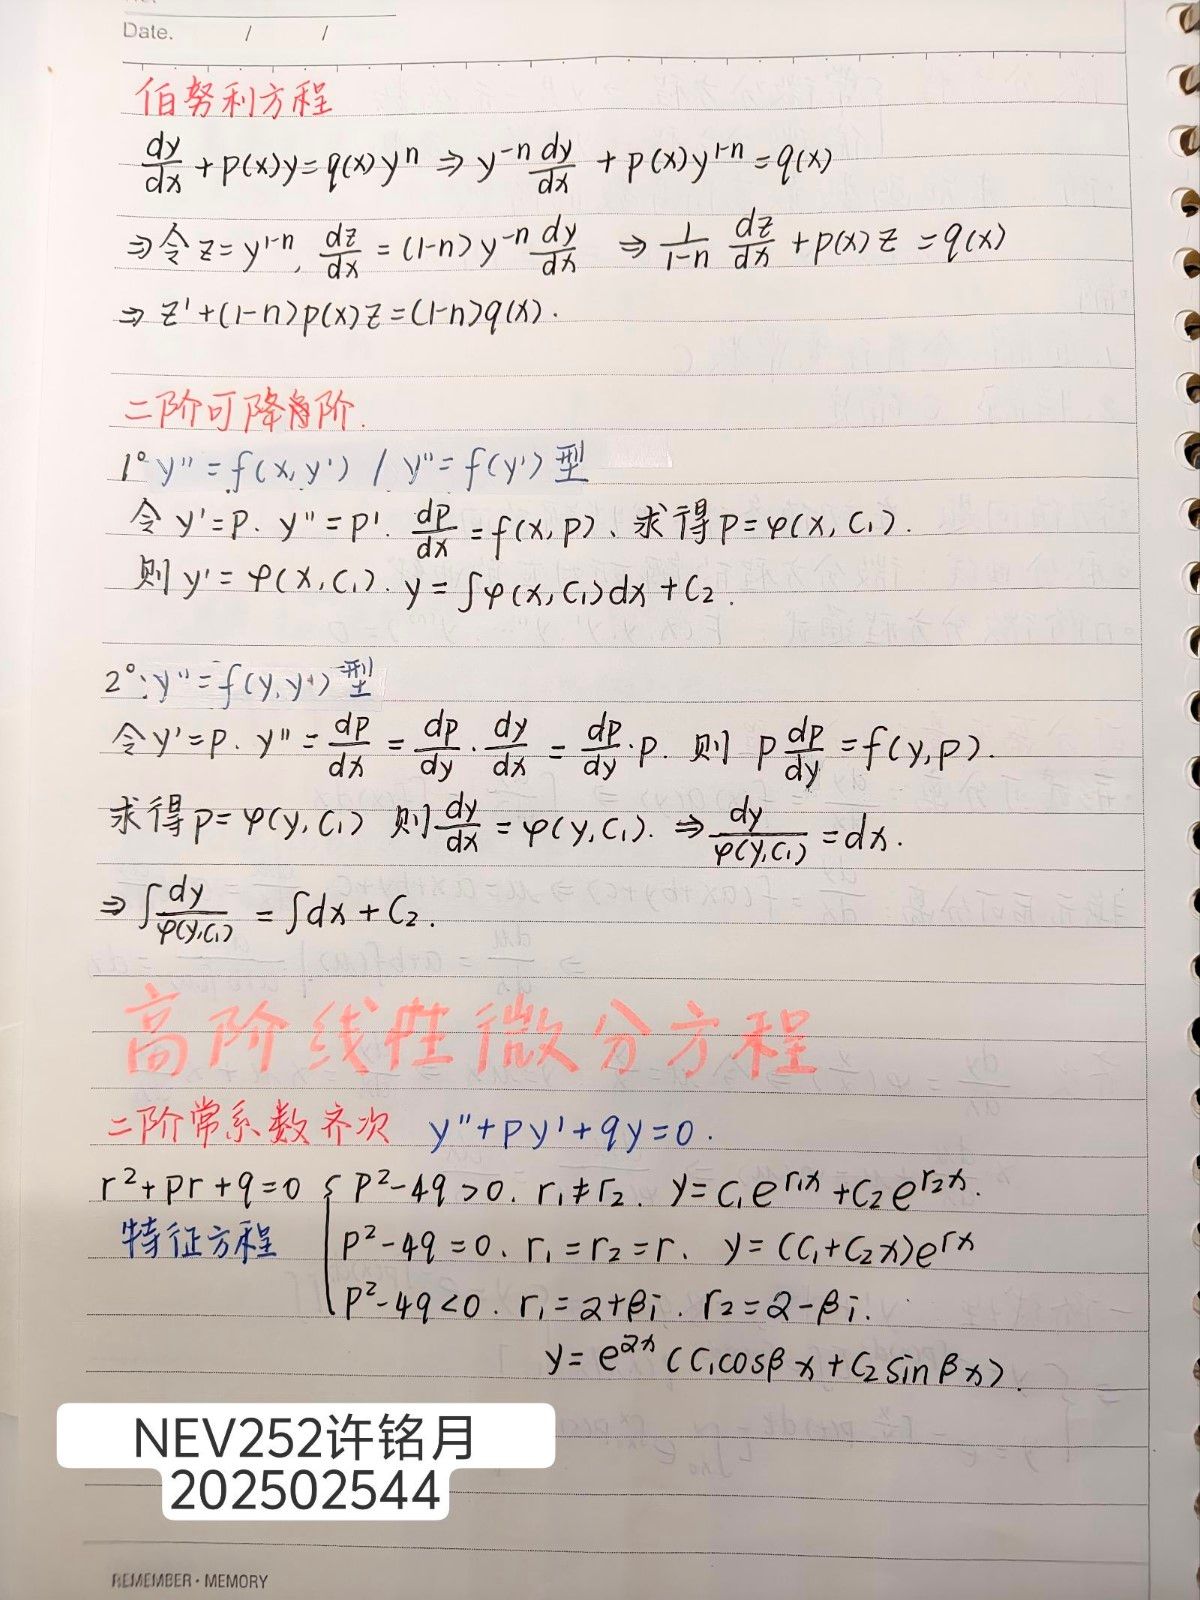 Date. / /
伯努利方程
dy/dx + p(x)y = q(x)yⁿ ⇒ y⁻ⁿ dy/dx + p(x)y¹⁻ⁿ = q(x)
⇒ 令 z = y¹⁻ⁿ, dz/dx = (1-n)y⁻ⁿ dy/dx ⇒ 1/(1-n) dz/dx + p(x)z = q(x)
⇒ z' + (1-n)p(x)z = (1-n)q(x).
二阶可降阶.
1° y'' = f(x,y') / y'' = f(y') 型
令 y' = p. y'' = p'. dp/dx = f(x,p)、求得 p = φ(x,C₁).
则 y' = φ(x,C₁). y = ∫φ(x,C₁)dx + C₂.
2°: y'' = f(y,y') 型
令 y' = p. y'' = dp/dx = dp/dy · dy/dx = dp/dy · p. 则 p dp/dy = f(y,p).
求得 p = φ(y,C₁) 则 dy/dx = φ(y,C₁). ⇒ dy/φ(y,C₁) = dx.
⇒ ∫ dy/φ(y,C₁) = ∫dx + C₂.
高阶线性微分方程
二阶常系数齐次 y'' + py' + qy = 0.
r² + pr + q = 0 { p² - 4q > 0. r₁ ≠ r₂. y = C₁e^(r₁x) + C₂e^(r₂x).
特征方程 p² - 4q = 0. r₁ = r₂ = r. y = (C₁ + C₂x)e^(rx)
p² - 4q < 0. r₁ = α + βi. r₂ = α - βi.
y = e^(αx) (C₁cosβx + C₂sinβx).
NEV252许铭月
202502544
REMEMBER · MEMORY